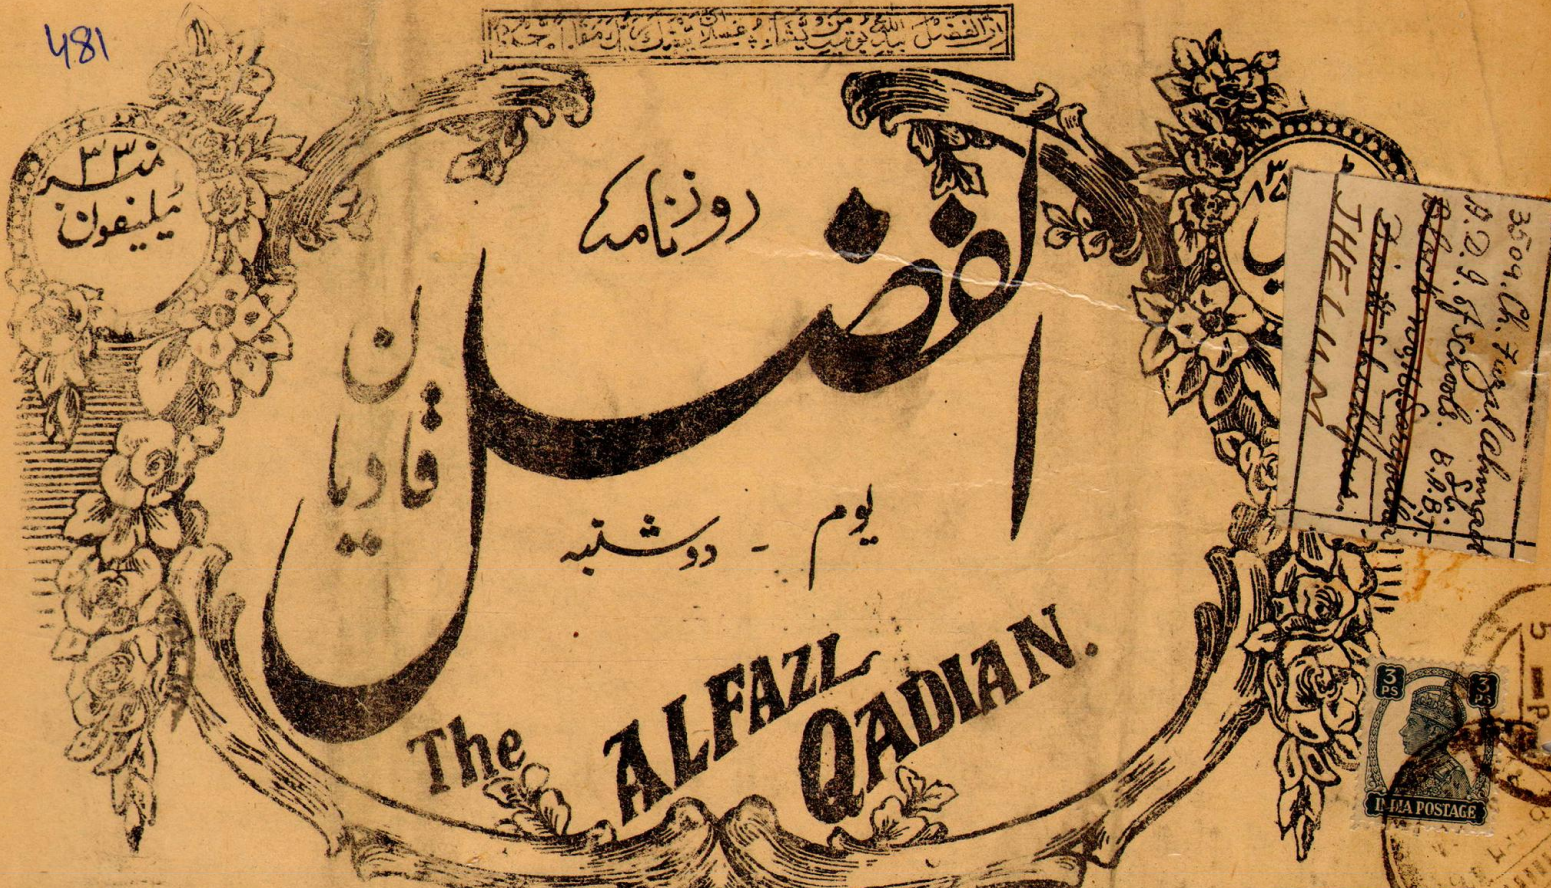 481
ان الفضل بيد الله يؤتيه من يشاء
نمبر ۳۳
ٹیلیفون
روزنامہ
الفضل
قادیان
یوم - دوشنبہ
The ALFAZL QADIAN.
3509. Ch. Fazal Ahmad
A.D.I. of Schools. B.A.B.T.
JHELUM
3 PS 3 PS
INDIA POSTAGE